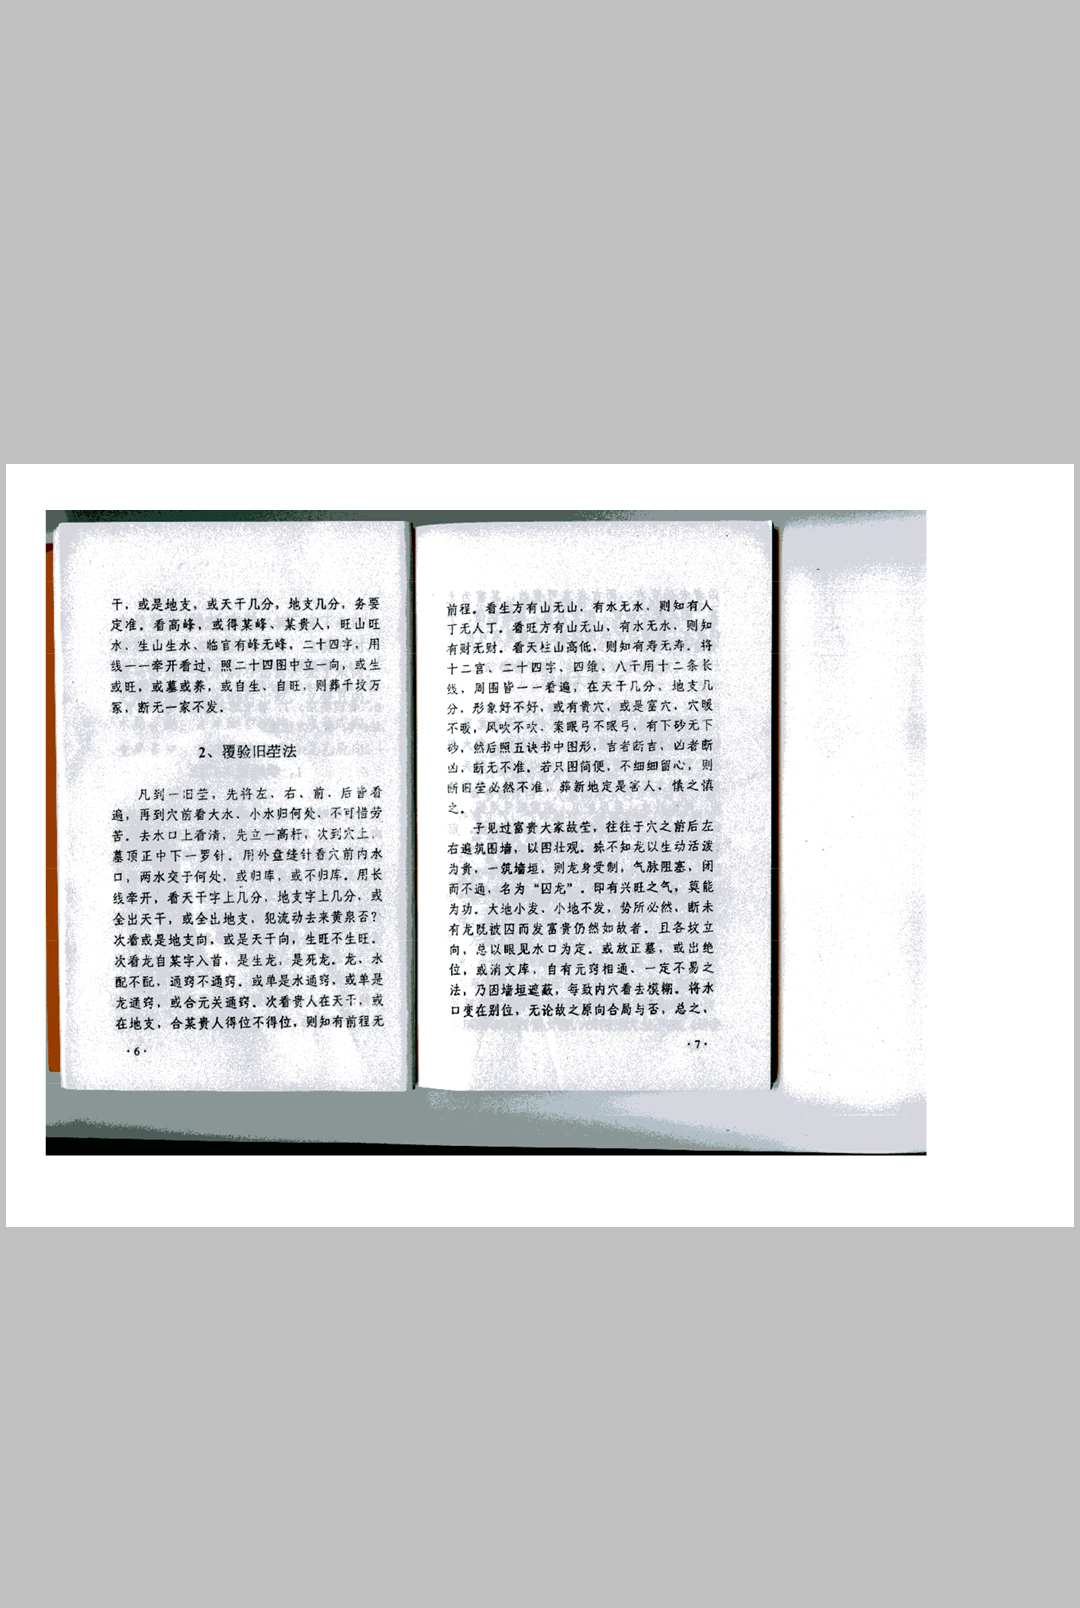 干，或是地支，或天干几分，地支几分，务要
定准。看高峰，或得某峰、某贵人，旺山旺
水、生山生水、临官有峰无峰，二十四字，用
线一一牵开看过，照二十四图中立一向，或生
或旺，或墓或养，或自生、自旺，则葬千坟万
冢，断无一家不发。
2、覆验旧茔法
凡到一旧茔，先将左、右、前、后皆看
遍，再到穴前看大水、小水归何处、不可惜劳
苦。去水口上看清，先立一高杆，次到穴上、
墓顶正中下一罗针。用外盘缝针看穴前内水
口，两水交于何处，或归库，或不归库。用长
线牵开，看天干字上几分，地支字上几分，或
全出天干，或全出地支，犯流动去来黄泉否？
次看或是地支向，或是天干向，生旺不生旺。
次看龙自某字入首，是生龙，是死龙。龙、水
配不配，通窍不通窍。或单是水通窍、或单是
龙通窍，或合元关通窍。次看贵人在天干，或
在地支，合某贵人得位不得位，则知有前程无
·6·
前程。看生方有山无山，有水无水，则知有人
丁无人丁。看旺方有山无山、有水无水，则知
有财无财。看天柱山高低，则知有寿无寿。将
十二宫、二十四字、四维、八干用十二条长
线，周围皆一一看遍，在天干几分、地支几
分，形象好不好，或有贵穴，或是富穴，穴暖
不暖，风吹不吹、案眠弓不眠弓，有下砂无下
砂，然后照五诀书中图形，吉者断吉，凶者断
凶，断无不准。若只图简便，不细细留心，则
断旧茔必然不准，葬新地定是害人，慎之慎
之。
予见过富贵大家故茔，往往于穴之前后左
右遍筑围墙，以图壮观。殊不知龙以生动活泼
为贵，一筑墙垣，则龙身受制，气脉阻塞，闭
而不通，名为“囚龙”。即有兴旺之气，莫能
为功。大地小发、小地不发，势所必然，断未
有龙既被囚而发富贵仍然如故者。且各坟立
向，总以眼见水口为定。或放正墓，或出绝
位，或消文库，自有元窍相通、一定不易之
法，乃因墙垣遮蔽，每致内穴看去模糊。将水
口变在别位，无论故之原向合局与否，总之，
·7·